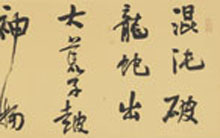 混沌破
龍蛇出
大荒子鼓
神物